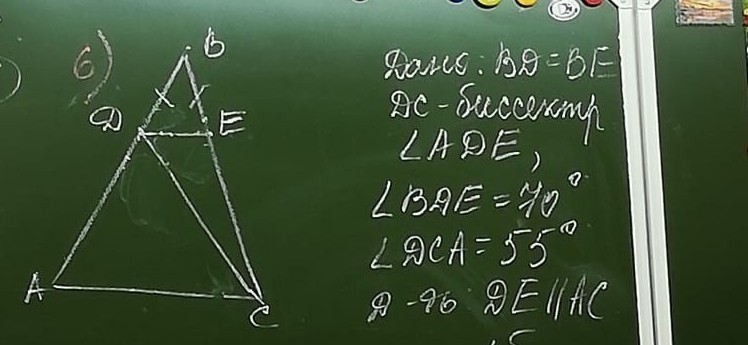 б)
B
D
E
A
C
Дано: BD = BE
DC - биссектр
∠ADE,
∠BDE = 70°
∠DCA = 55°
Д-ть DE || AC